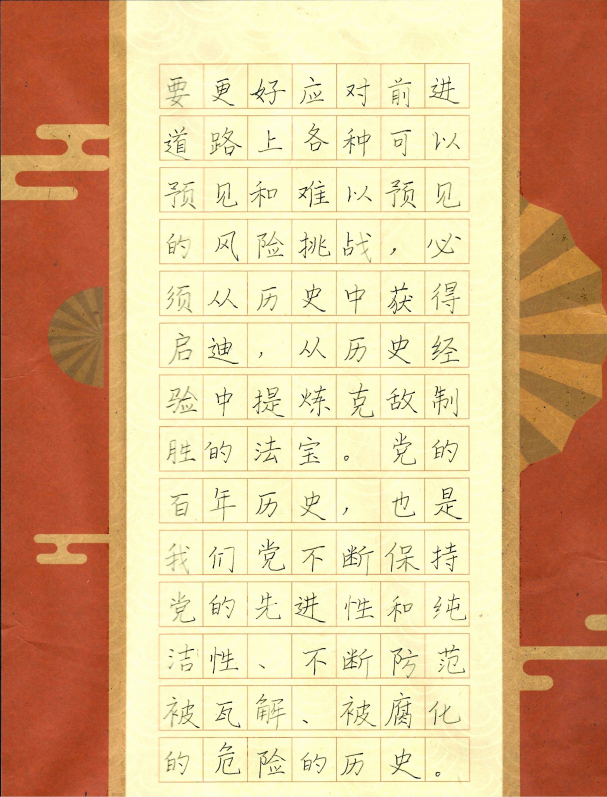 要更好应对前进
道路上各种可以
预见和难以预见
的风险挑战，必
须从历史中获得
启迪，从历史经
验中提炼克敌制
胜的法宝。党的
百年历史，也是
我们党不断保持
党的先进性和纯
洁性、不断防范
被瓦解、被腐化
的危险的历史。